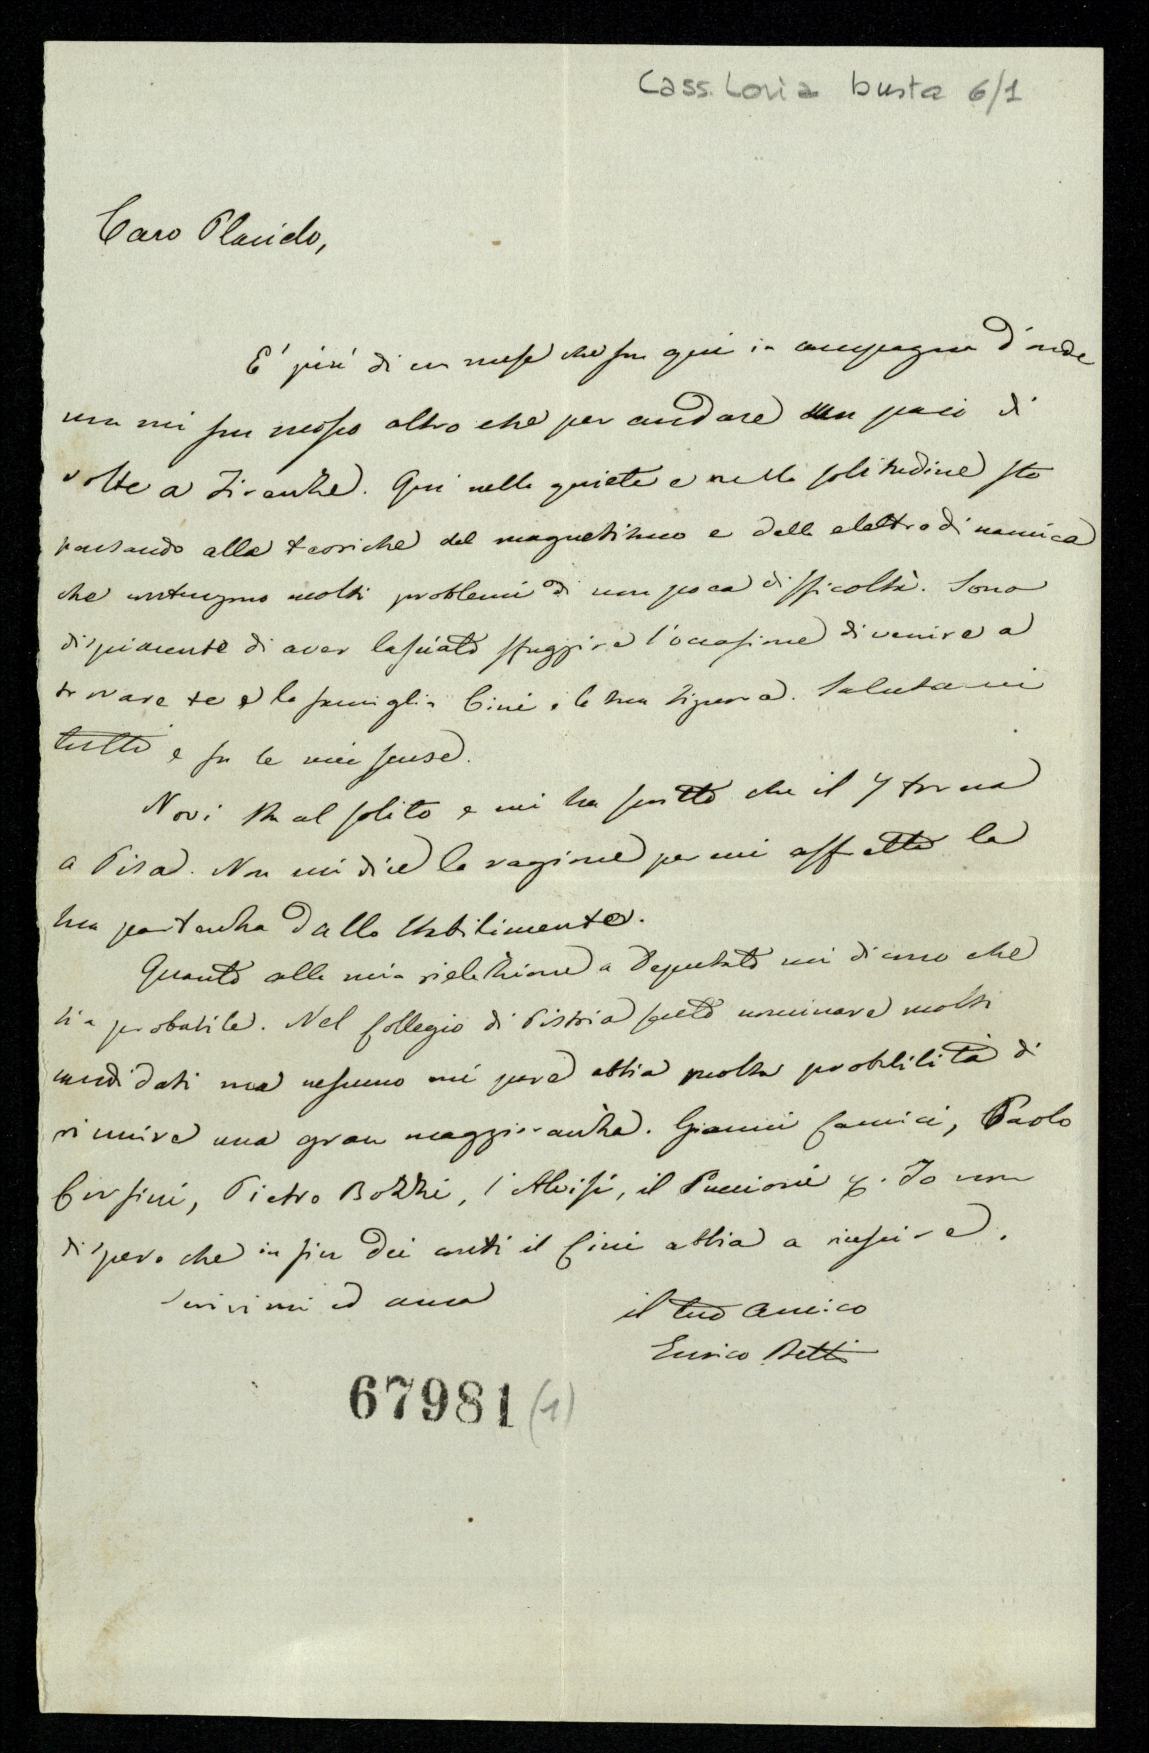 Cass. Loria busta 6/1
Caro Placido,
E' più di un mese che son qui in campagna d'onde
non mi son mosso altro che per andare un pajo di
volte a Firenze. Qui nella quiete e nella solitudine sto
pensando alla teoriche del magnetismo e della elettrodinamica
che contengono molti problemi di non poca difficoltà. Sono
dispiacente di aver lasciato sfuggire l'occasione di venire a
trovare te e la famiglia Cini e la tua Signora. Salutami
tutti e fa le mie scuse.
Novi sta al solito e mi ha scritto che il 7 torna
a Pisa. Non mi dice la ragione per cui affretta la
sua partenza dallo Stabilimento.
Quanto alla mia rielezione a Deputato mi dicono che
sia probabile. Nel Collegio di Pistoia sento nominare molti
candidati ma nessuno mi pare abbia molta probabilità di
riunire una gran maggioranza. Gianni Camici, Paolo
Corsini, Pietro Bozzi, l'Alvisi, il Puccioni &. Io non
dispero che in fin dei conti il Cini abbia a riuscire.
Scrivimi ed ama
il tuo amico
Enrico Betti
67981 (1)